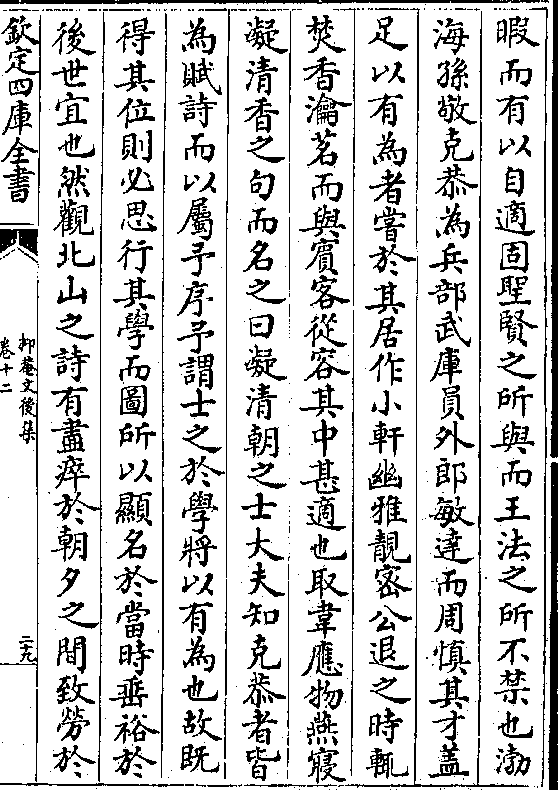 暇而有以自適固聖賢之所與而王法之所不禁也渤
海孫敬克恭為兵部武庫員外郎敏達而周慎其才蓋
足以有為者嘗於其居作小軒幽雅靚密公退之時輒
焚香瀹茗而與賓客從容其中甚適也取韋應物燕寢
凝清香之句而名之曰凝清朝之士大夫知克恭者皆
為賦詩而以屬予序予謂士之於學將以有為也故既
得其位則必思行其學而圖所以顯名於當時垂裕於
後世宜也然觀北山之詩有盡瘁於朝夕之間致勞於
欽定四庫全書
抑菴文後集
卷十二
二九